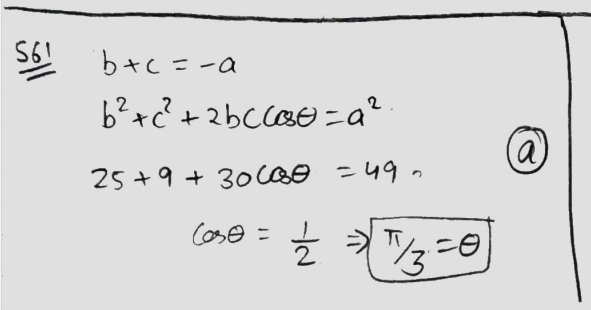 561
b+c = -a
b²+c²+2bccosθ = a².
25+9+30cosθ = 49
cosθ = 1/2 ⇒ π/3 = θ
a